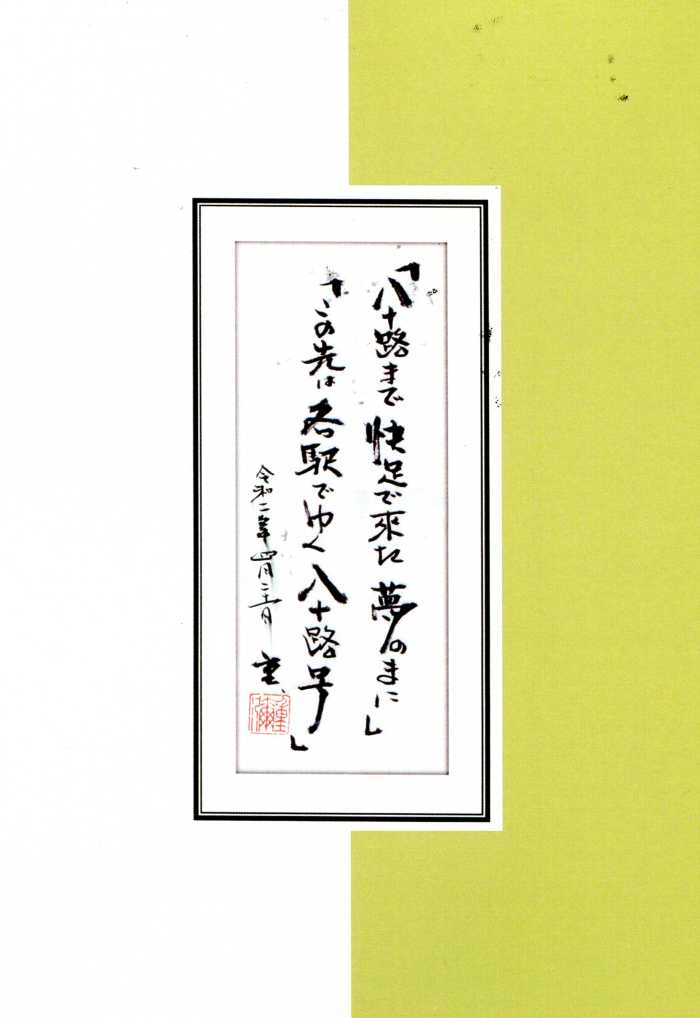 「八十路まで快足で來た夢のまに」
「この先は各駅でゆく八十路号」
令和二年四月二十一日 重